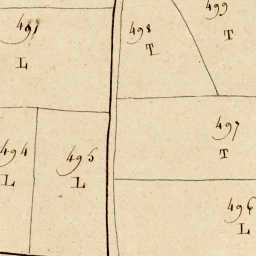 499
T
498
T
491
L
497
T
494
L
495
L
496
L